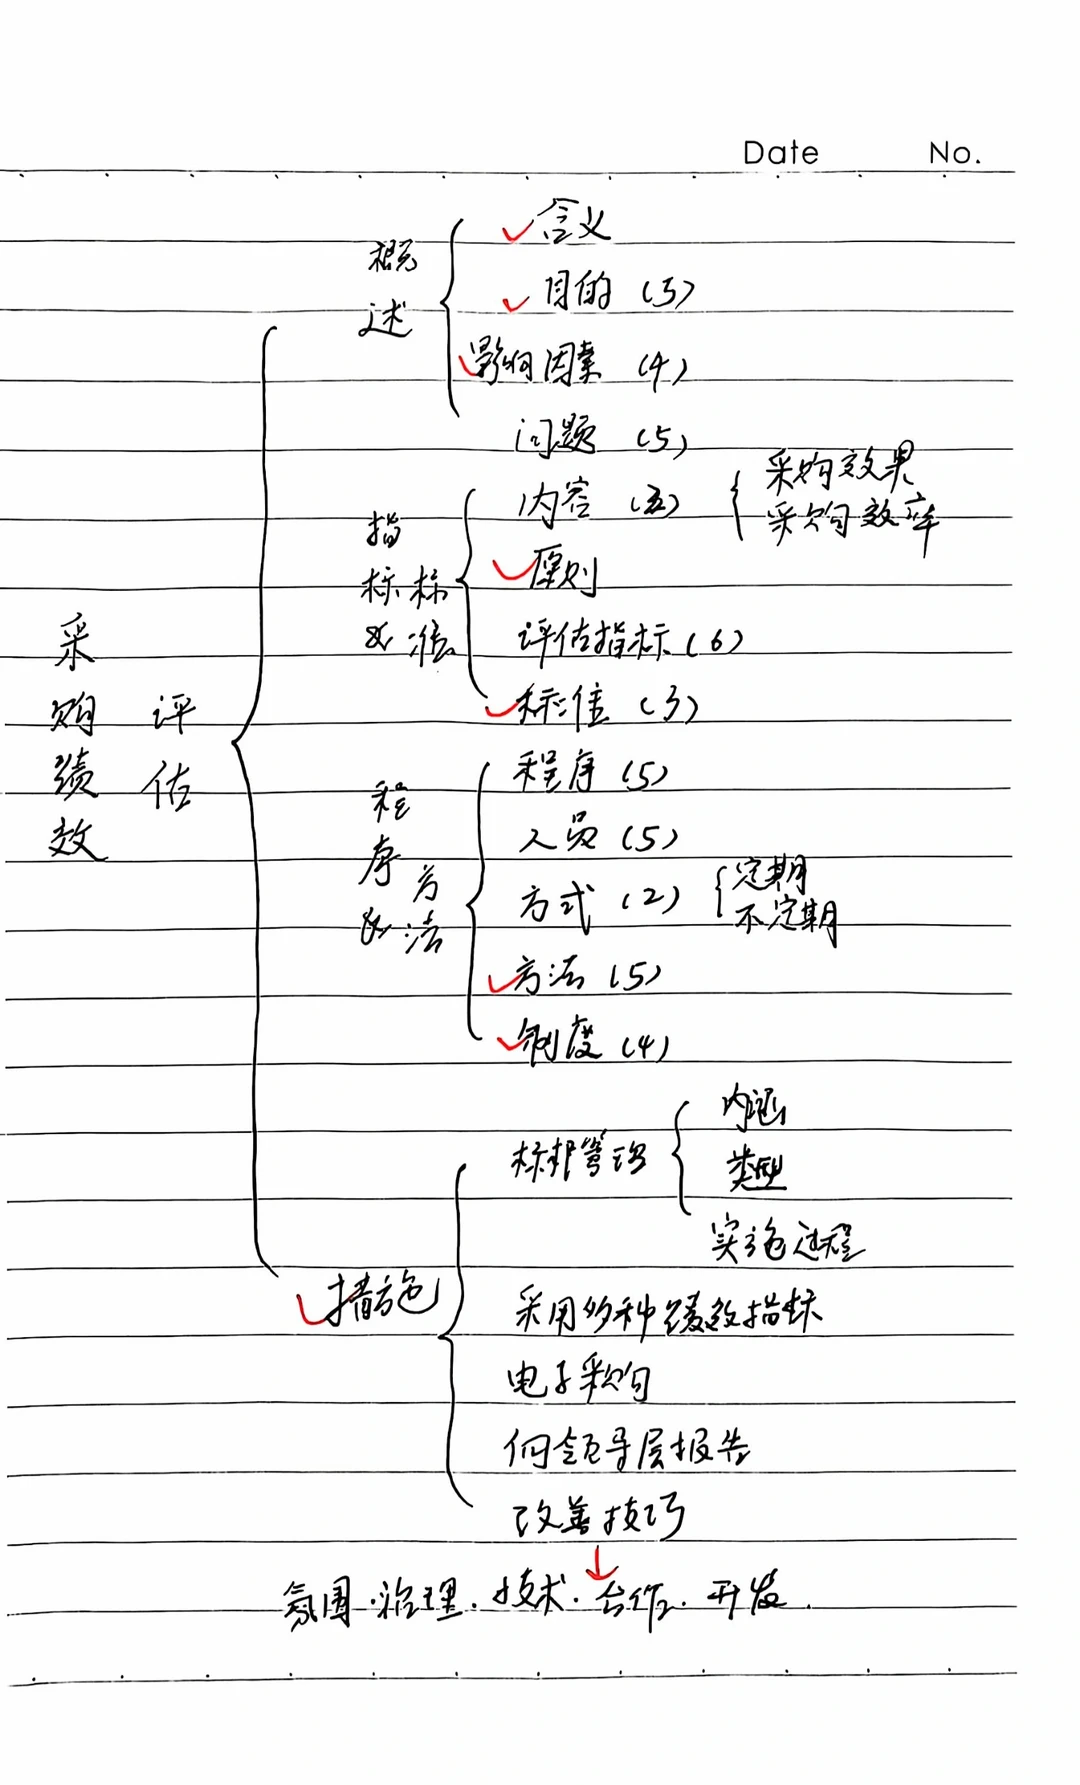 Date No.
采购绩效评估
概述
含义
目的（5）
影响因素（4）
问题（5）
指标及标准
内容（五）
采购效果
采购效率
原则
评估指标（6）
标准（3）
程序及方法
程序（5）
人员（5）
方式（2）
定期
不定期
方法（5）
制度（4）
措施
标杆管理
内涵
类型
实施过程
采用多种绩效指标
电子采购
向领导层报告
改善技巧
氛围·治理·技术·合作·开发